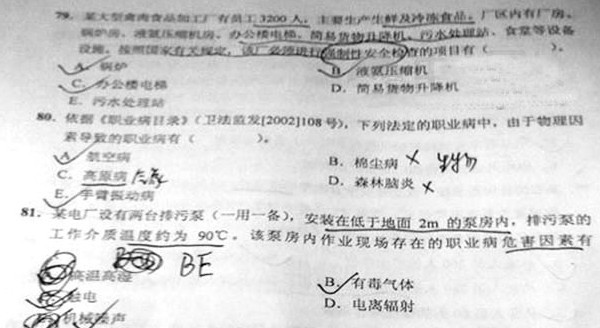 79. 某大型禽肉食品加工厂有员工3200人，主要生产生鲜及冷冻食品。厂区内有厂房、
锅炉房、液氨压缩机房、办公楼电梯、简易货物升降机、污水处理站、食堂等设备
设施。按照国家有关规定，该厂必须进行强制性安全检查的项目有（ ）。
A. 锅炉
B. 液氨压缩机
C. 办公楼电梯
D. 简易货物升降机
E. 污水处理站
80. 依据《职业病目录》（卫法监发[2002]108号），下列法定的职业病中，由于物理因
素导致的职业病有（ ）。
A. 航空病
B. 棉尘病 × 生物
C. 高原病
D. 森林脑炎 ×
E. 手臂振动病
81. 某电厂设有两台排污泵（一用一备），安装在低于地面2m的泵房内，排污泵的
工作介质温度约为90℃。该泵房内作业现场存在的职业病危害因素有
BE
高温高湿
B. 有毒气体
触电
D. 电离辐射
机械噪声